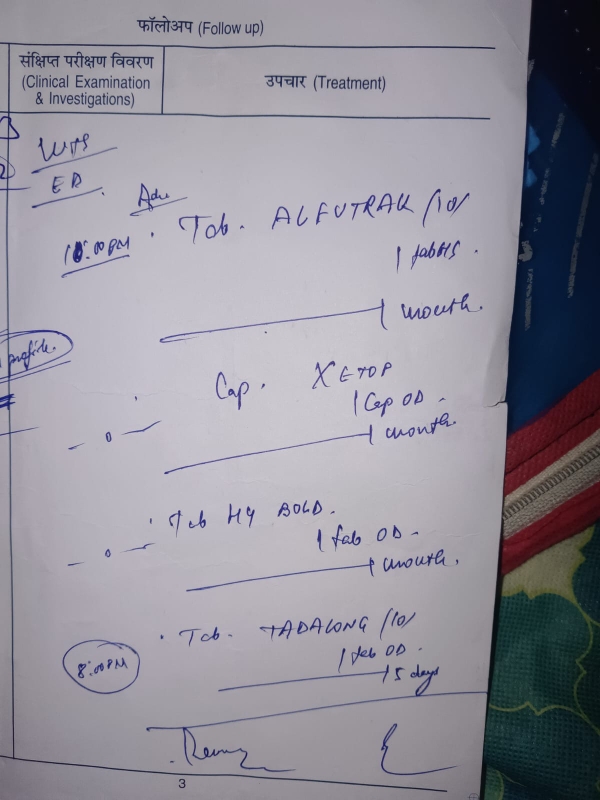 फॉलोअप (Follow up)
संक्षिप्त परीक्षण विवरण
(Clinical Examination
& Investigations)
उपचार (Treatment)
LUTS
ED
Adv
10:00PM
Tab. ALFUTRAK /10/
1 tab HS.
1 month.
profile.
Cap. XETOP
1 Cap OD.
1 month.
- 0 -
Tab HY BOLD.
1 tab OD.
- 0 -
1 month.
Tab. TADALONG /10/
1 tab OD.
8:00PM
15 days
3